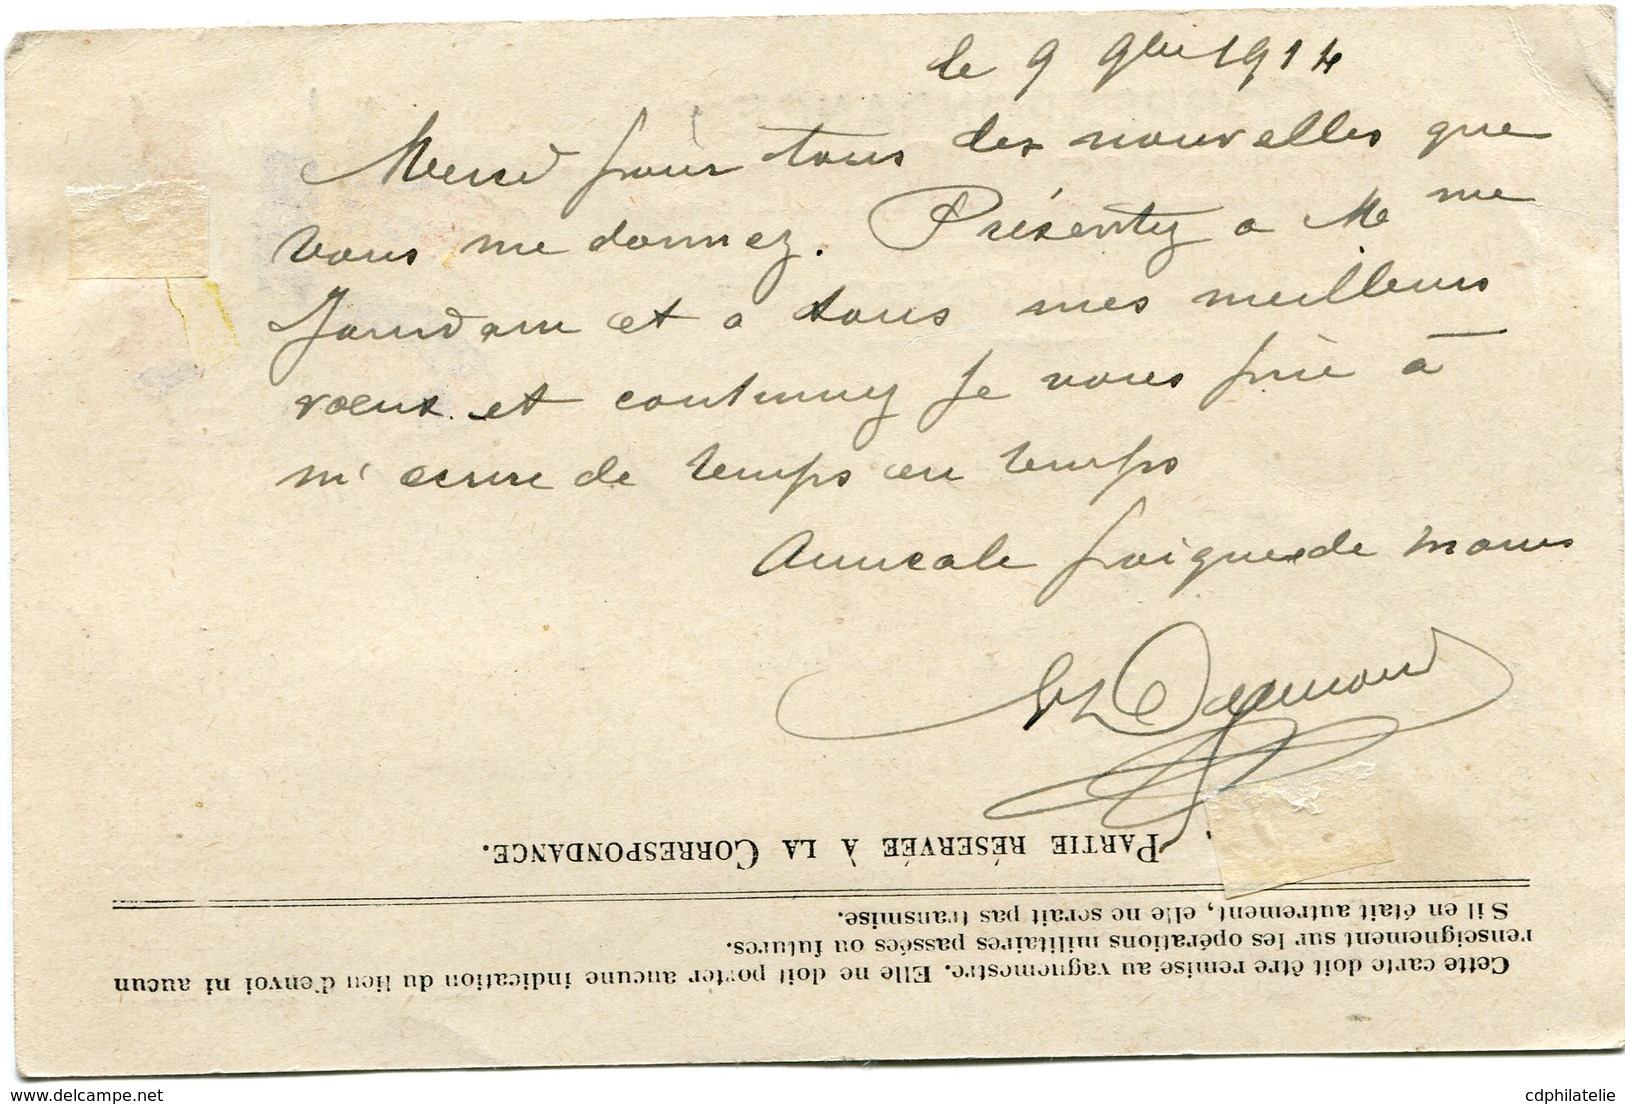 le 9 9bre 1914
Merci pour tous des nouvelles que
vous me donnez. Présentez a Mme
Jourdan et a tous mes meilleurs
vœux et continuez je vous prie à
m'ecrire de temps en temps
Amicale poignee de mains
PARTIE RÉSERVÉE À LA CORRESPONDANCE.
Cette carte doit être remise au vaguemestre. Elle ne doit porter aucune indication du lieu d'envoi ni aucun
renseignement sur les opérations militaires passées ou futures.
S'il en était autrement, elle ne serait pas transmise.
cdphilatelie